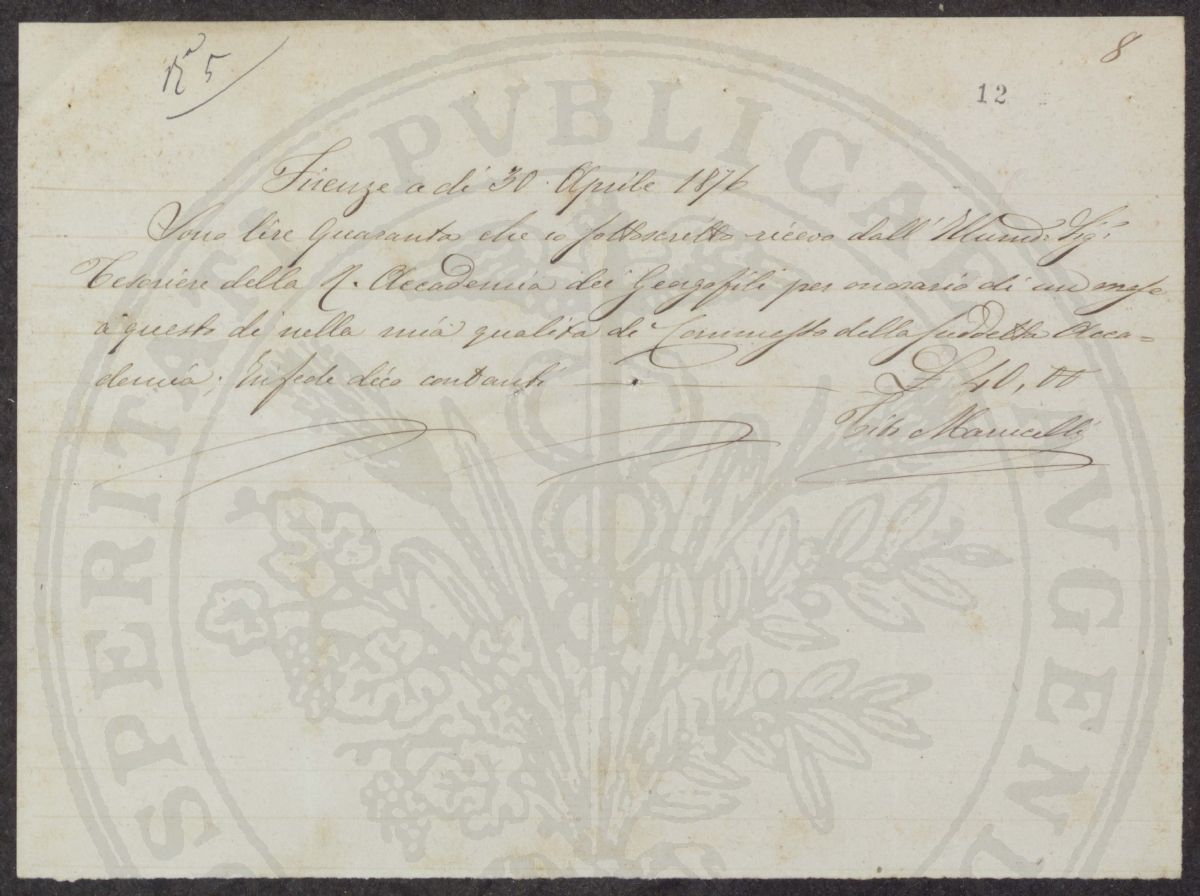 Nº 5
8
12
Firenze a di 30 Aprile 1876
Sono lire Quaranta che io sottoscritto ricevo dall' Illumo: Sig:
Tesoriere della R. Accademia dei Georgofili per onorario di un mese
a questo di nella mia qualita di Commesso della suddetta Acca=
demia; In fede dico contanti £ 40,00
Tito
PROSPERITATI PVBLICAE AVGENDAE